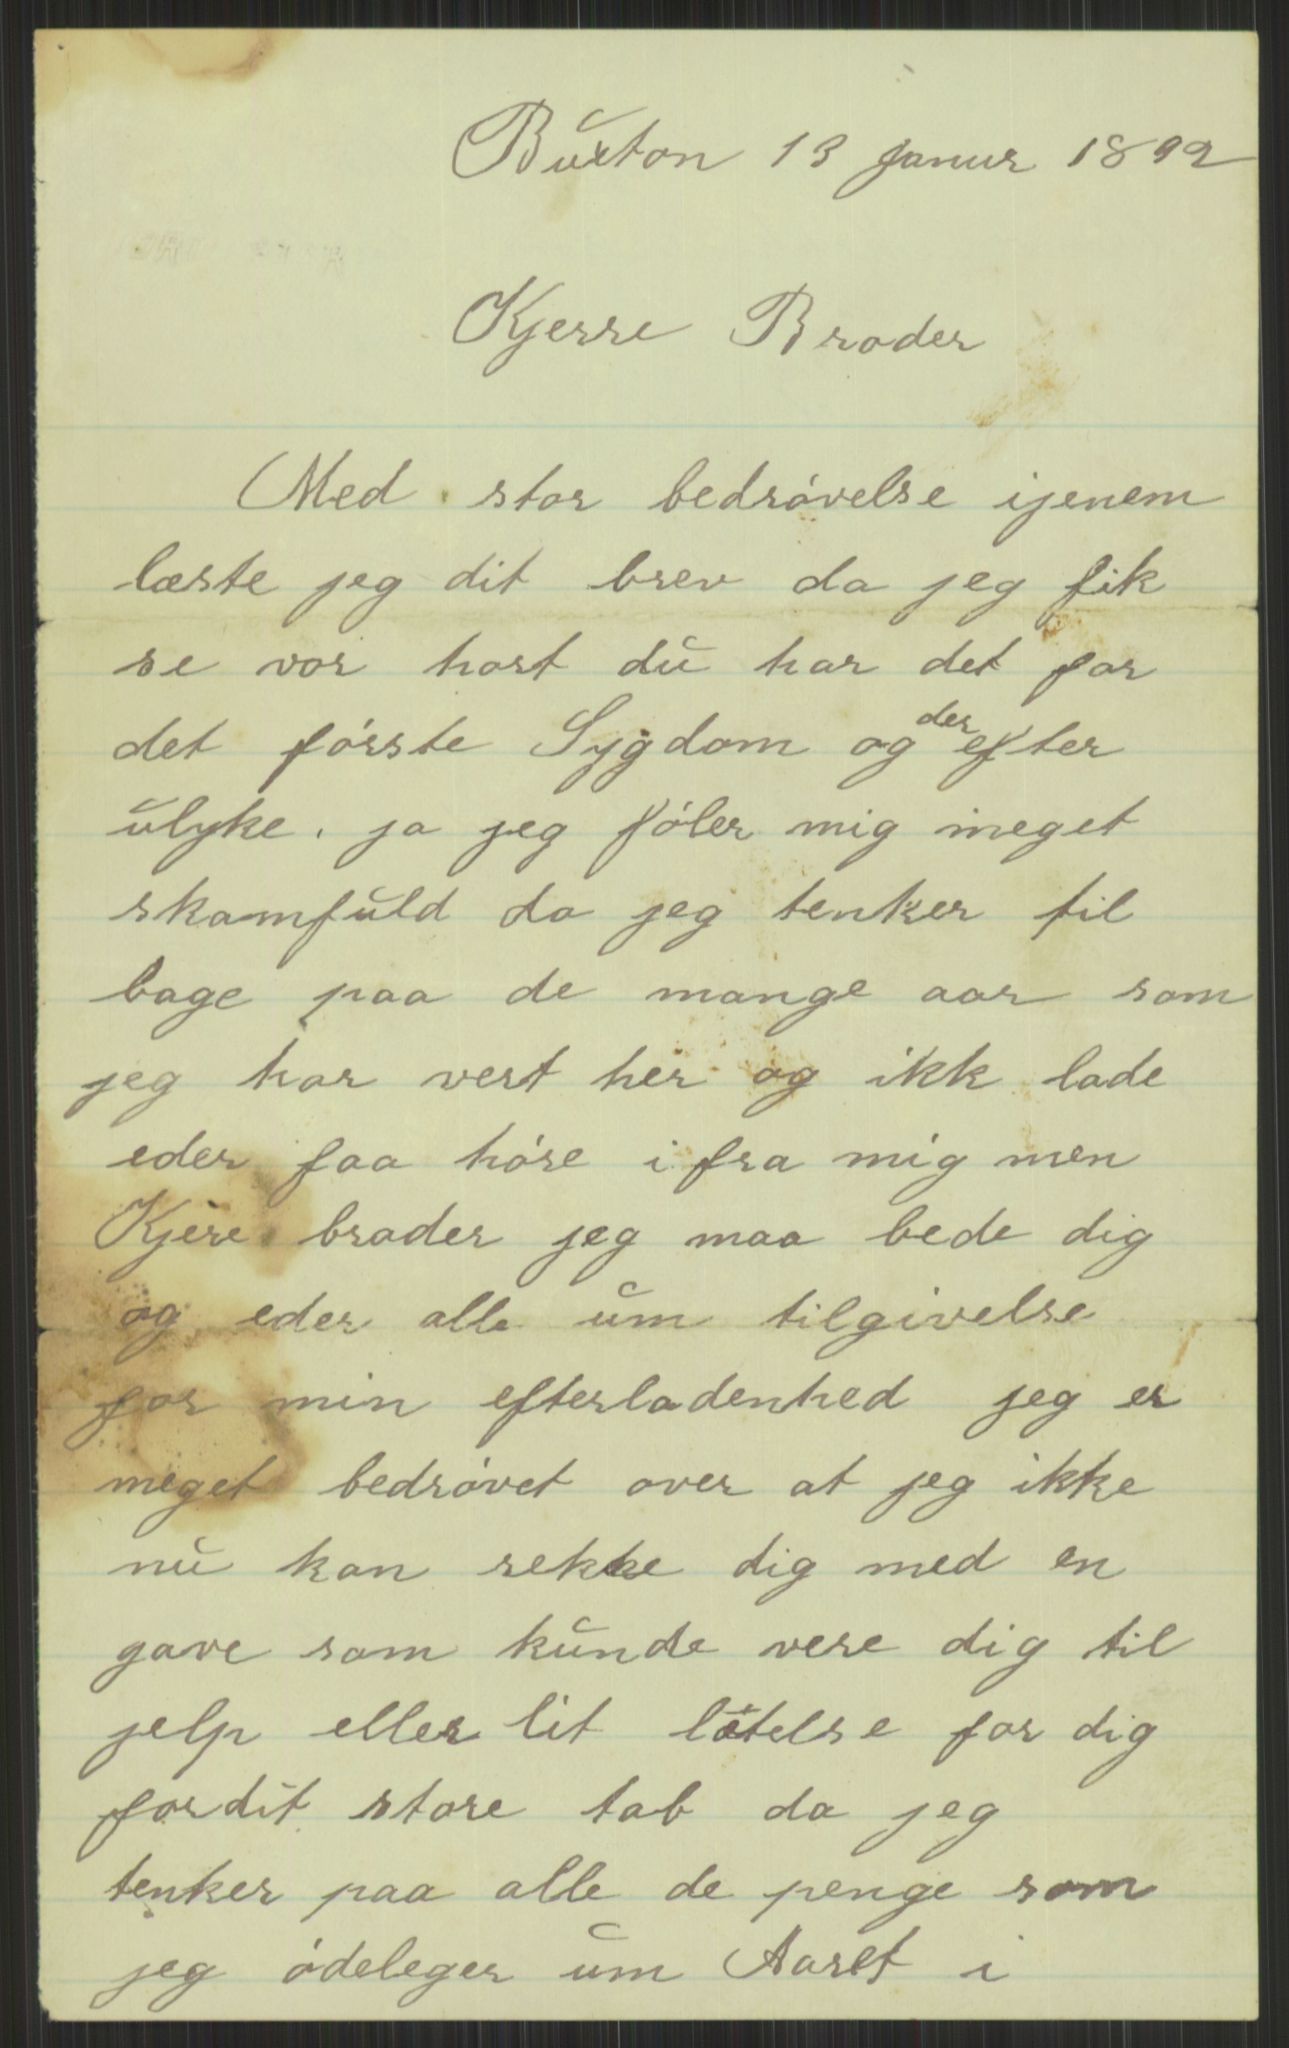 Buxton 13 Janur 1892
Kjerre Broder
Med stor bedrövelse igjenem
læste jeg dit brev da jeg fik
se vor hart du har det for
det förste Sygdom og der efter
ulyke. ja jeg föler mig meget
skamfuld da jeg tenker til
bage paa de mange aar som
jeg har vert her og ikk lade
eder faa höre i fra mig men
Kjere broder jeg maa bede dig
og eder alle um tilgivelse
for min efterladenhed jeg er
meget bedrövet over at jeg ikke
nu kan rekke dig med en
gave som kunde vere dig til
jelp eller lit letelse for dig
for dit store tab da jeg
tenker paa alle de penge som
jeg ödeleger um Aaret i